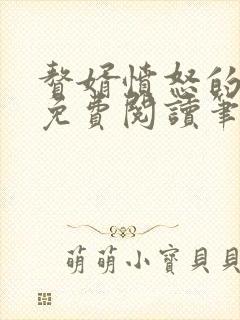 贅婿憤怒的
免費閱讀筆
萌萌小寶貝貝